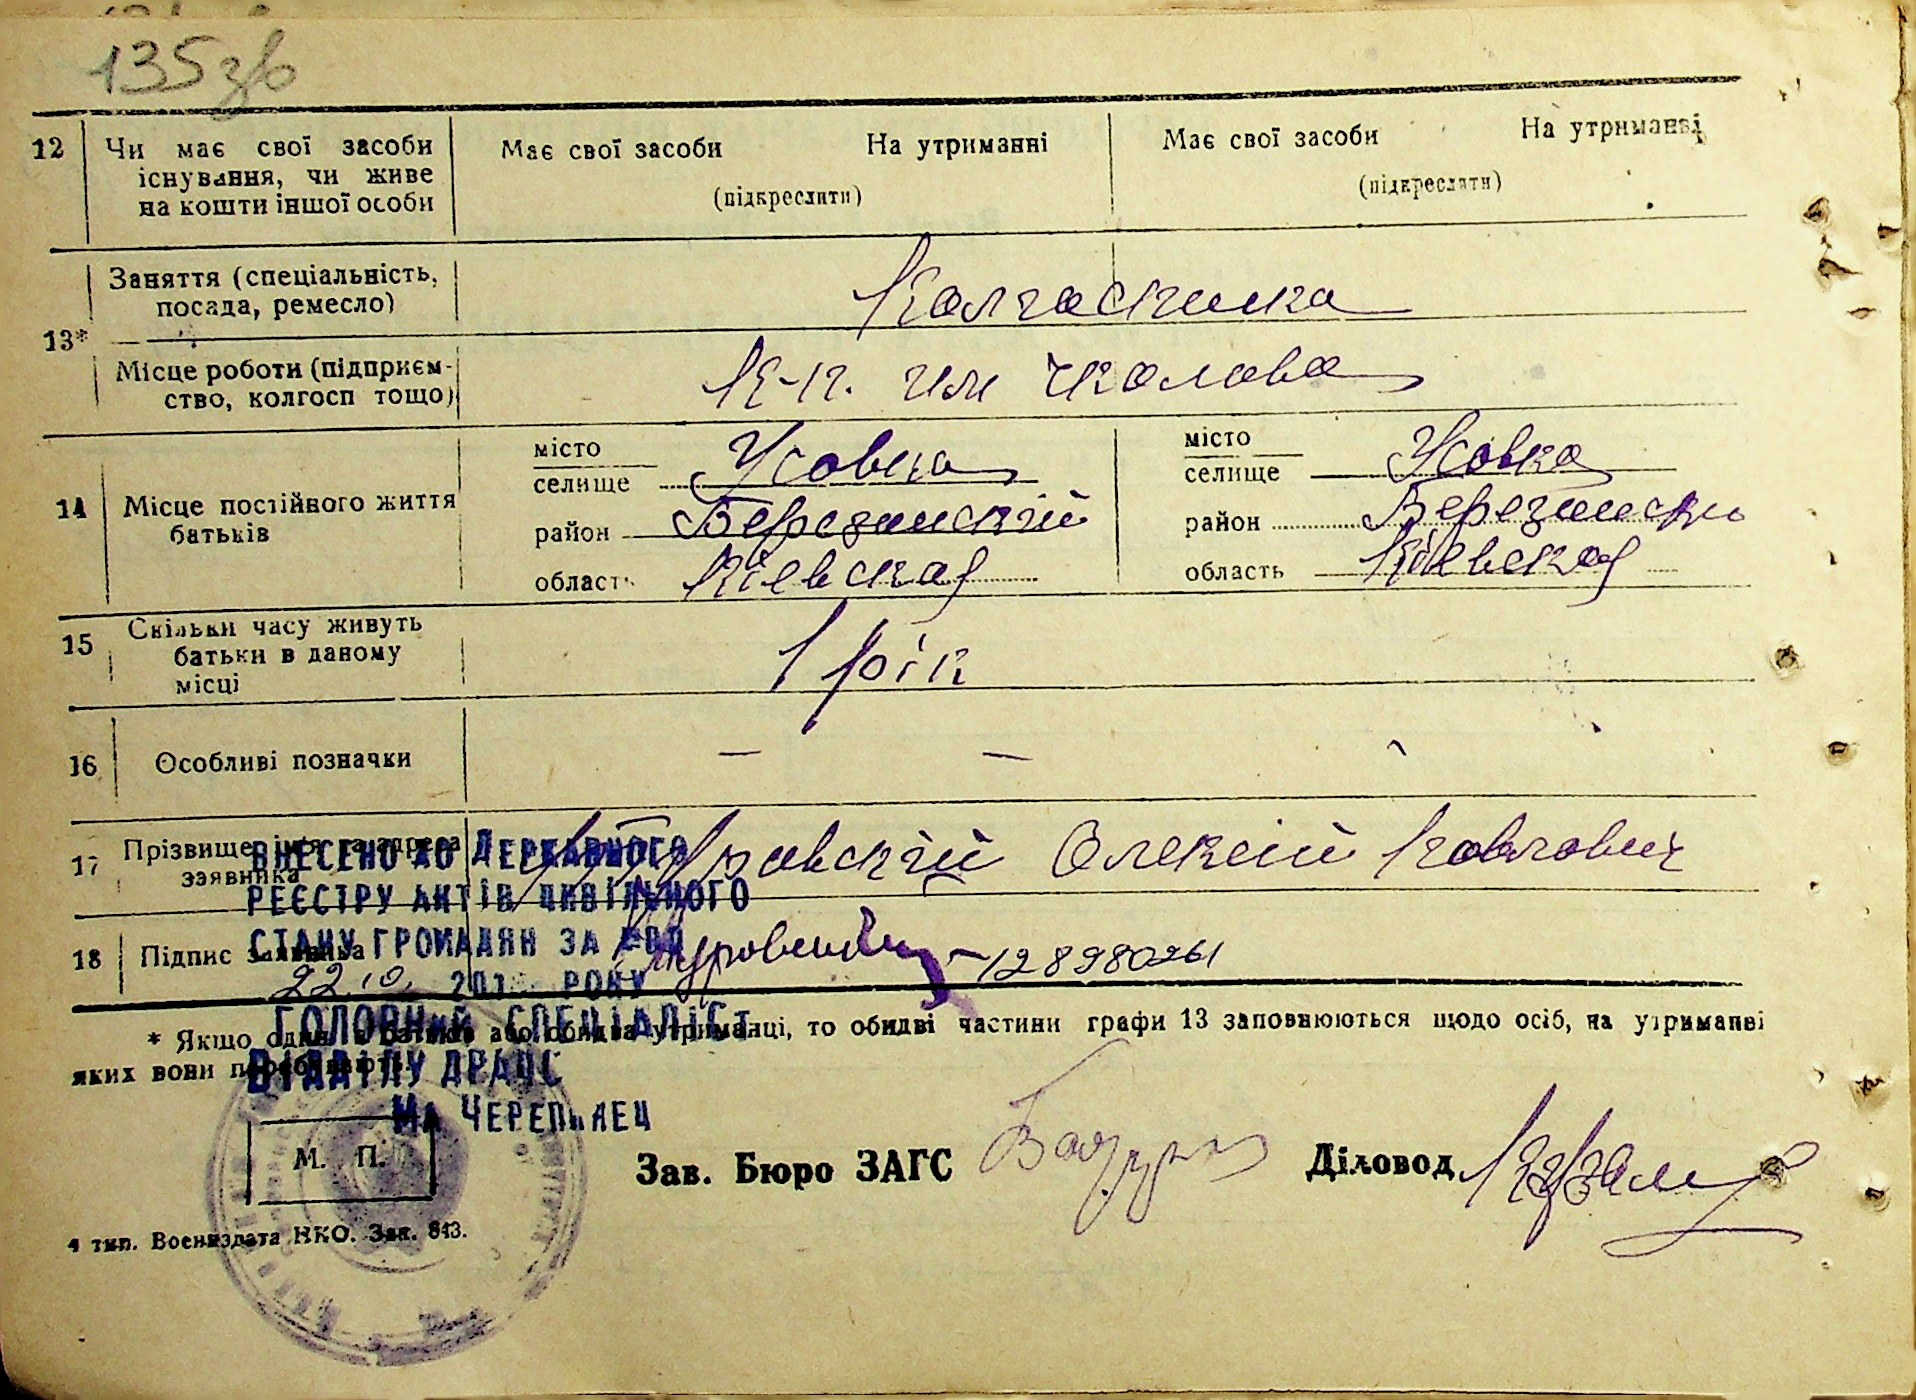 135 зв
12 Чи має свої засоби існування, чи живе на кошти іншої особи
Має свої засоби На утриманні
(підкреслити)
Має свої засоби На утриманні
(підкреслити)
13*
Заняття (спеціальність, посада, ремесло)
Колгоспника
Місце роботи (підприємство, колгосп тощо)
К-п. им Чкалова
14 Місце постійного життя батьків
місто
селище Усовка
район Березанский
область Киевская
місто
селище Усовка
район Березанск
область Киевская
15 Скільки часу живуть батьки в даному місці
1 рік
16 Особливі позначки
— —
17 Прізвище, ім'я та адреса заявника
Олексій Павлович
18 Підпис заявника
128980261
ВНЕСЕНО ДО ДЕРЖАВНОГО
РЕЄСТРУ АКТІВ ЦИВІЛЬНОГО
СТАНУ ГРОМАДЯН ЗА
201 РОКУ
ГОЛОВНИЙ СПЕЦІАЛІСТ
ВІДДІЛУ ДРАЦС
* Якщо один з батьків або обидва утриманці, то обидві частини графи 13 заповнюються щодо осіб, на утриманні
яких вони перебувають.
М. П.
Зав. Бюро ЗАГС
Діловод
4 тип. Воениздата НКО. Зак. 843.